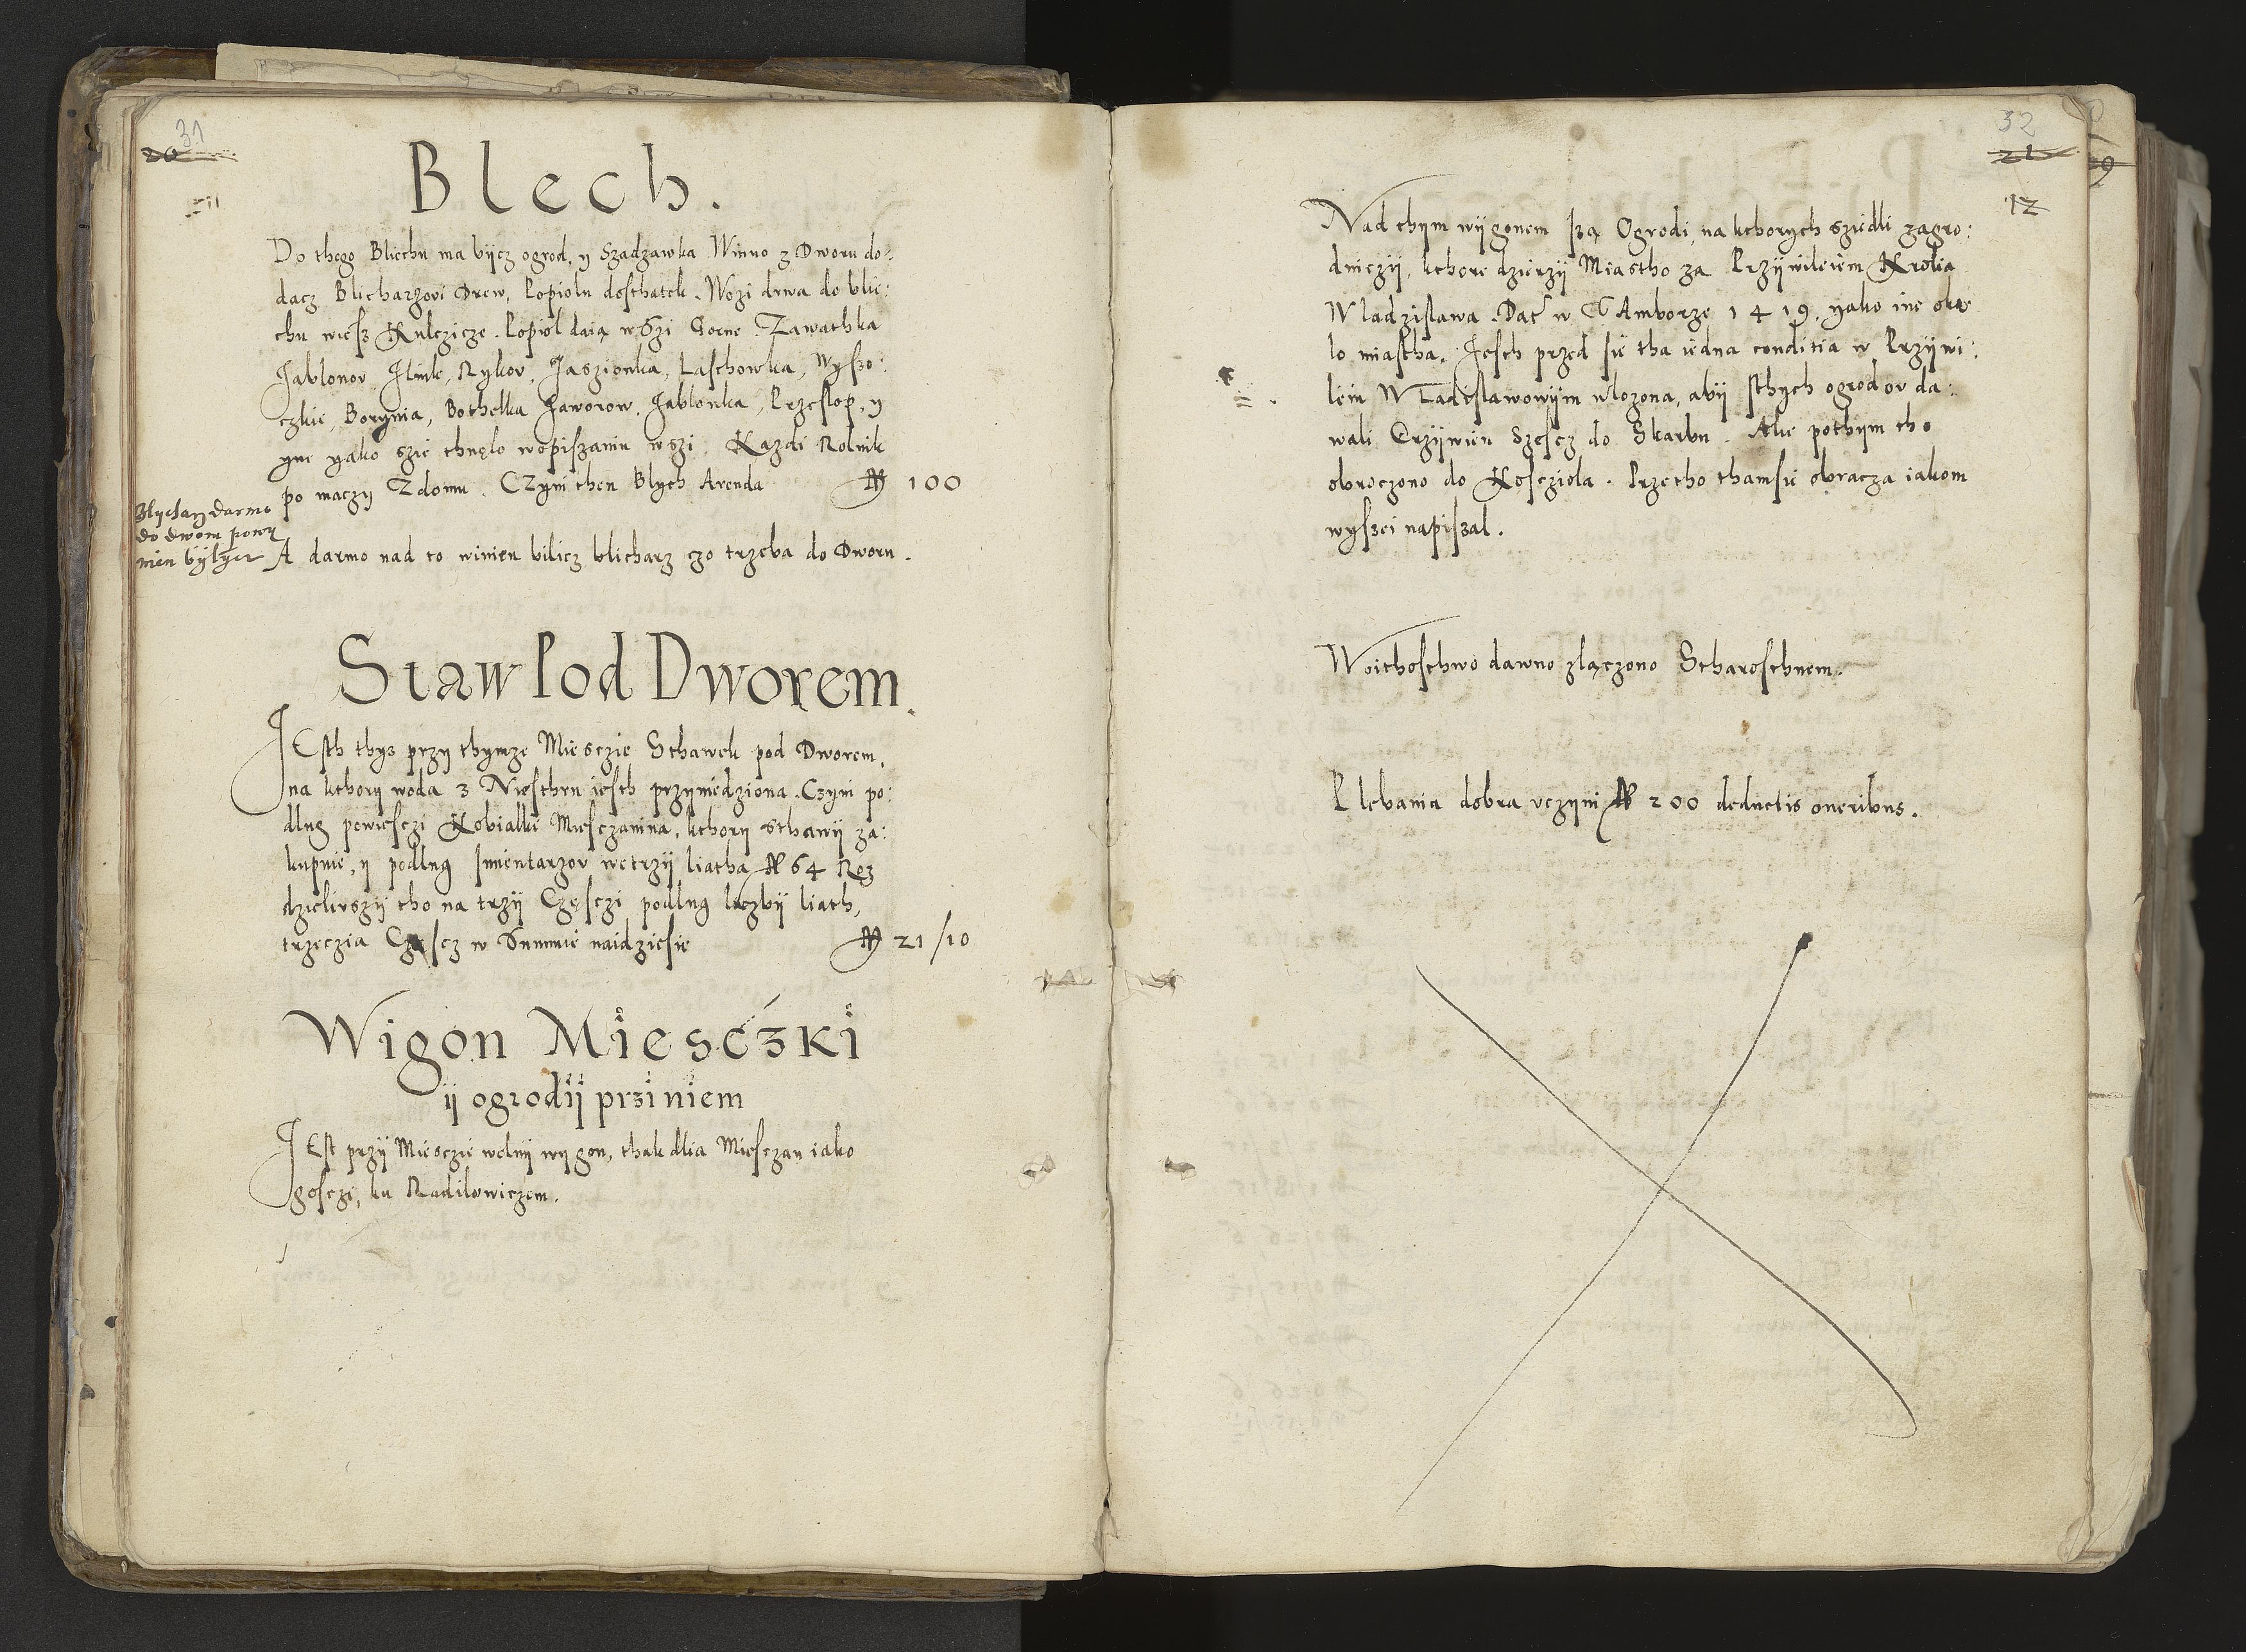 31
20
Blech.
Do thego Bliechu ma bycz ogrod, y Szadzawka. Winno z Dworu do:
dacz Blicharzovi Drew, Popiolu dosthatek. Wozi drwa do blie:
chu wiesz Kulczicze. Popiol daią wszi Gorne Zawathka
Jablonov, Ilnik, Rykov, Jaszionka, Lasthowka, Wyszo:
czkie, Borynia, Bothelka Jaworow, Jablonka, Przeslop, y
yne yako szie thnęlo wopiszaniu wszi. Kazdi Rolnik
po maczy Zdomu. CZyni then Blych Arenda 100
Blycharz darmo
do dworu powy
nien byelycz
A darmo nad to winien bilicz blicharz czo trzeba do Dworu.
Staw Pod Dworem.
JEsth thys przy thymze Miesczie Sthawek pod Dworem,
na kthory woda z Niesthru iesth przywiedziona. Czyni po:
dlug powiesczi Kobialki Miesczanina, kthory sthawy za:
kupuie, y podlug Inuentarzov wetrzy liatha 64 Roz
dzieliwszy tho na trzy Częsczi podlug liczby liath,
trzeczia Częscz w Summie naidziesie 21/10
Wigon Miesczki
ij ogrodij przi niem
JEst przy Miesczie wolny wygon, thak dlia Miesczan iako
gosczi, ku Radilowiczom.
32
21
12
Nad thym wygonem Iszą Ogrodi, na kthorych sziedli zagro:
dniczy, kthore dzierzy Miastho za Przywileiem Krolia
Wladzislawa. Dat w SAmborze 1419, yako ine oko
lo miastha. Jesth przed sie tha iedna conditia w Przywi:
leiu WLadislawowym wlozona, aby sthych ogrodov da:
wali Grzywien szescz do Skarbu. Ale pothym tho
obroczono do Kosciola. Przetho thamsie obracza iakom
wyszei napiszal.
Woithosthwo dawno zlączono Stharosthwem.
Plebania dobra vczyni 200 deductis oneribus.